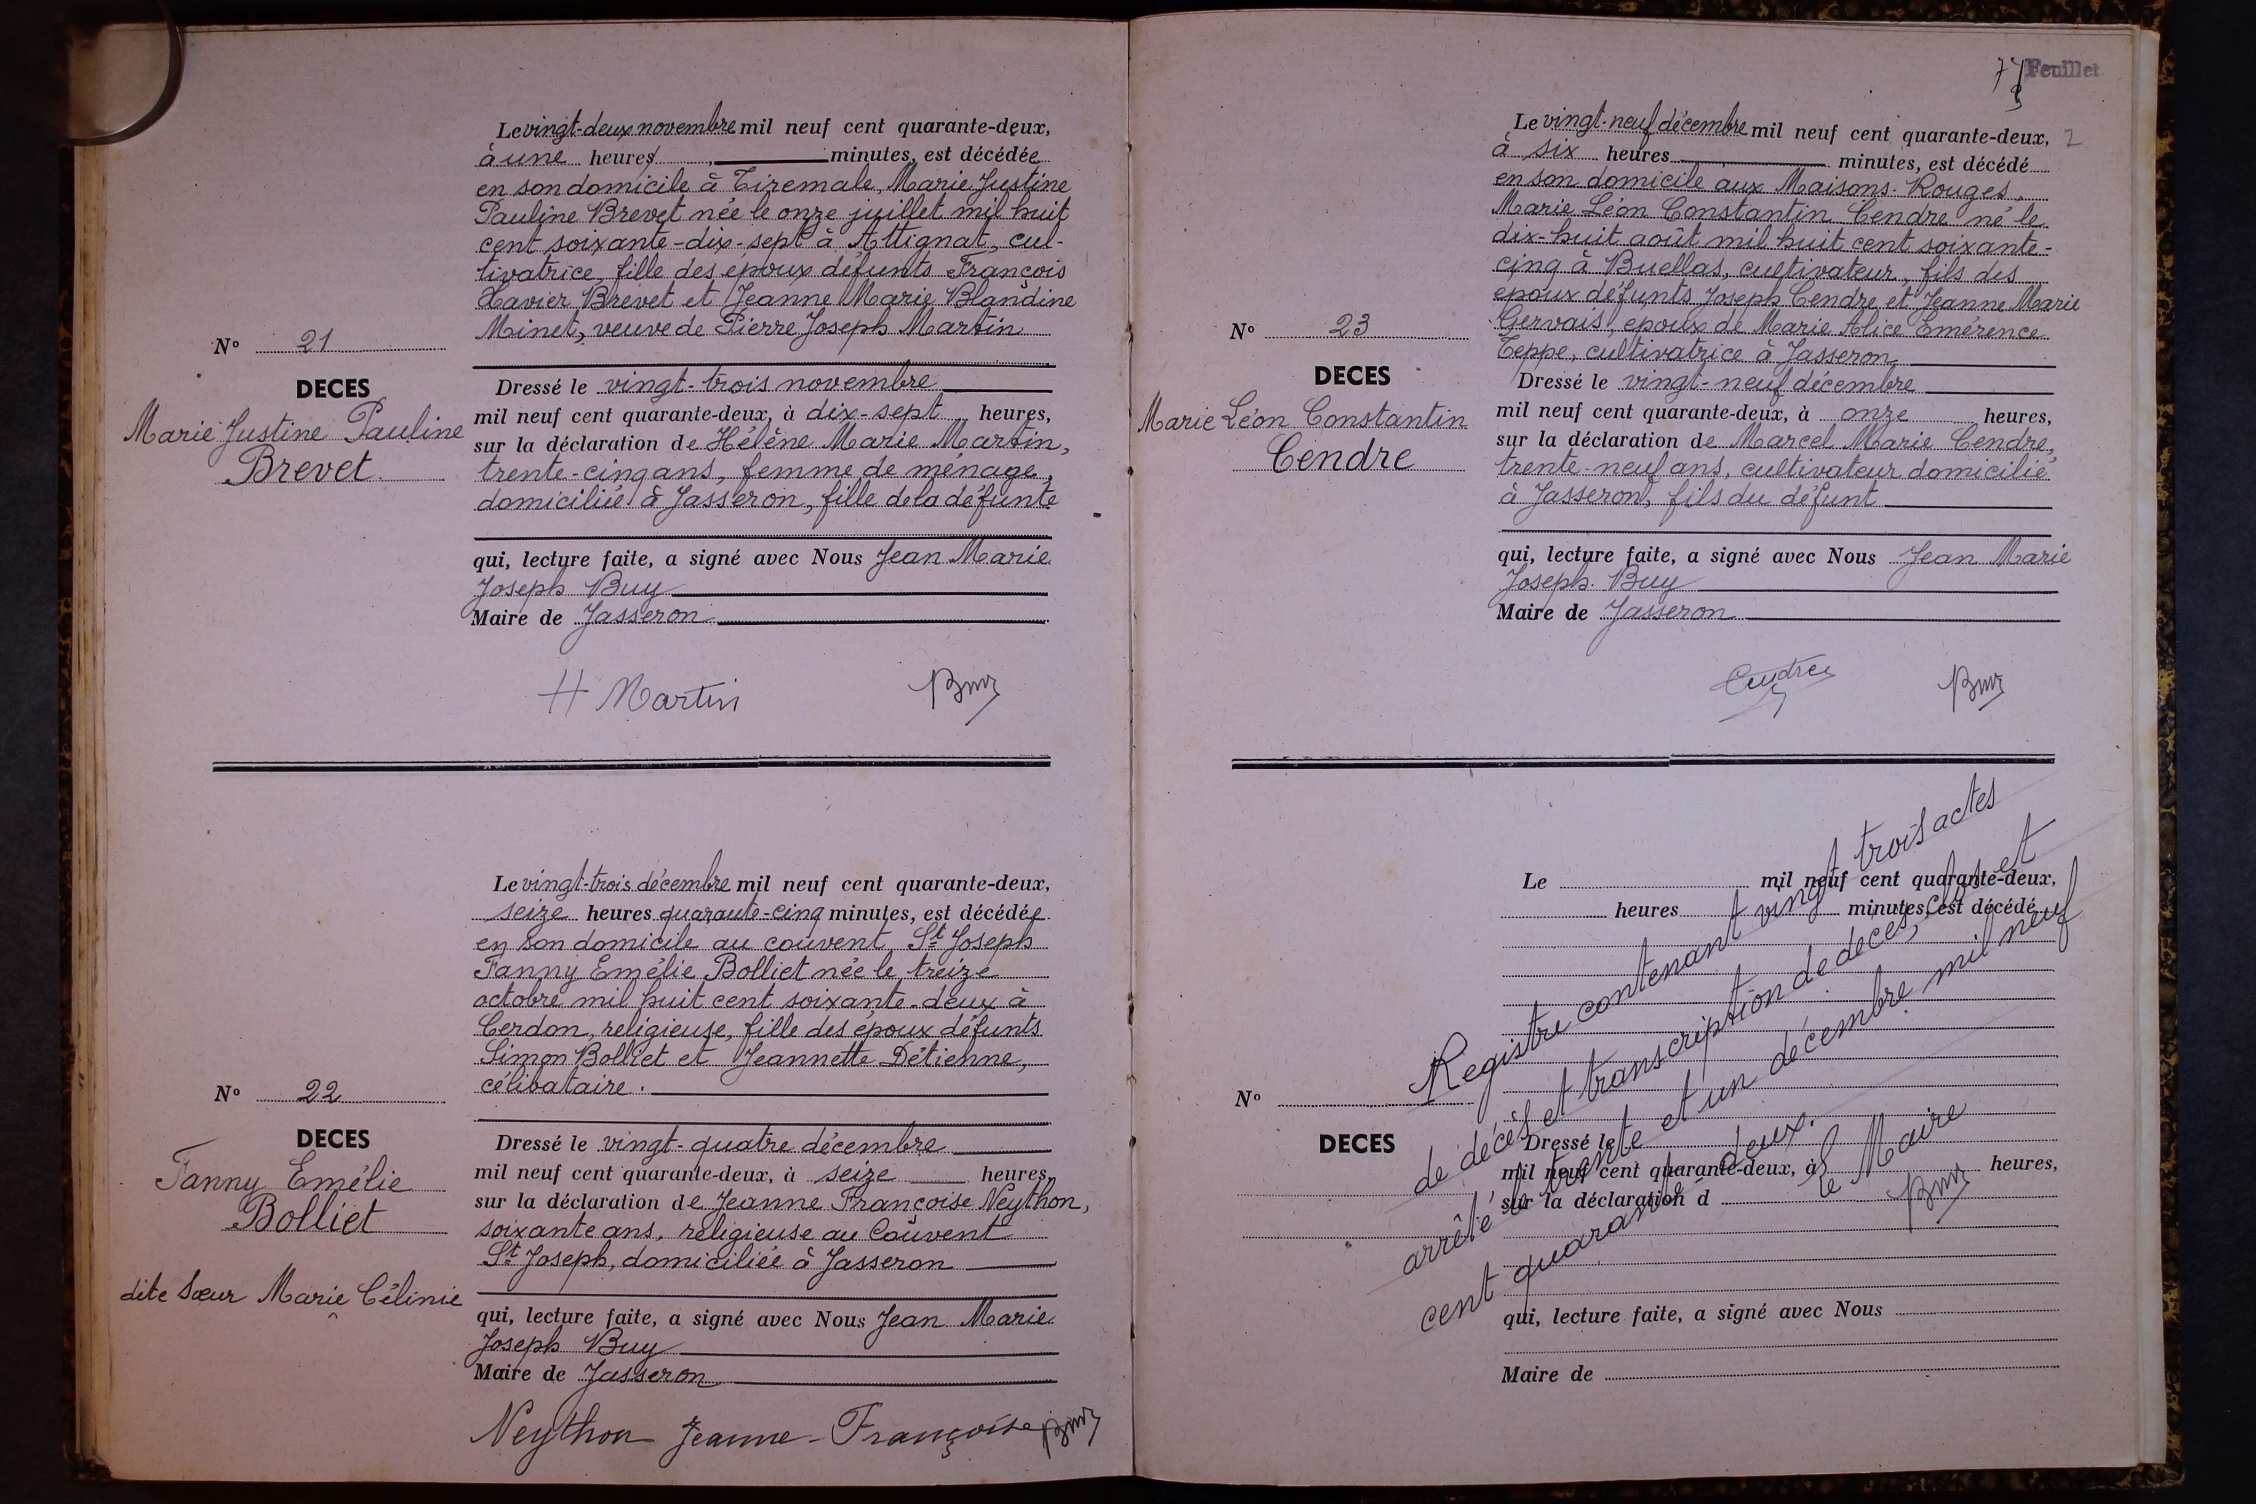 Le vingt-deux novembre mil neuf cent quarante-deux,
à une heures minutes, est décédée
en son domicile à Tiremale, Marie Justine
Pauline Brevet née le onze juillet mil huit
cent soixante-dix-sept à Attignat, cul-
tivatrice, fille des époux défunts François
Xavier Brevet et Jeanne Marie Blandine
Minet, veuve de Pierre Joseph Martin
N° 21
DECES
Marie Justine Pauline
Brevet
Dressé le vingt-trois novembre
mil neuf cent quarante-deux, à dix-sept heures,
sur la déclaration de Hélène Marie Martin,
trente-cinq ans, femme de ménage,
domiciliée à Jasseron, fille de la défunte
qui, lecture faite, a signé avec Nous Jean Marie
Joseph Buy
Maire de Jasseron
H Martin Buy
Le vingt-trois décembre mil neuf cent quarante-deux,
seize heures quarante-cinq minutes, est décédée
en son domicile au couvent St Joseph
Fanny Emélie Bolliet née le treize
octobre mil huit cent soixante-deux à
Cerdon, religieuse, fille des époux défunts
Simon Bolliet et Jeannette Détienne,
célibataire.
N° 22
DECES
Fanny Emélie
Bolliet
dite Sœur Marie Célinie
Dressé le vingt-quatre décembre
mil neuf cent quarante-deux, à seize heures,
sur la déclaration de Jeanne Françoise Neython,
soixante ans, religieuse au Couvent
St Joseph, domiciliée à Jasseron
qui, lecture faite, a signé avec Nous Jean Marie
Joseph Buy
Maire de Jasseron
Neython Jeanne-Françoise Buy
Feuillet
Le vingt-neuf décembre mil neuf cent quarante-deux, 2
à six heures minutes, est décédé
en son domicile aux Maisons-Rouges,
Marie Léon Constantin Cendre né le
dix-huit août mil huit cent soixante-
cinq à Buellas, cultivateur, fils des
epoux défunts Joseph Cendre et Jeanne Marie
Gervais, epoux de Marie Alice Emérence
Teppe, cultivatrice à Jasseron
N° 23
DECES
Marie Léon Constantin
Cendre
Dressé le vingt-neuf décembre
mil neuf cent quarante-deux, à onze heures,
sur la déclaration de Marcel Marie Cendre,
trente-neuf ans, cultivateur domicilié
à Jasseron, fils du défunt
qui, lecture faite, a signé avec Nous Jean Marie
Joseph Buy
Maire de Jasseron
Cendre Buy
Le mil neuf cent quarante-deux,
heures minutes, est décédé
N°
DECES
Dressé le
mil neuf cent quarante-deux, à heures,
sur la déclaration d
qui, lecture faite, a signé avec Nous
Maire de
Registre contenant vingt trois actes
de décès et transcription de décès, clos et
arrêté le trente et un décembre mil neuf
cent quarante-deux.
Le Maire
Buy